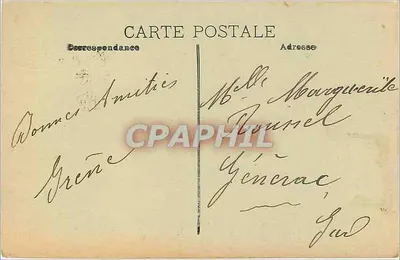 CARTE POSTALE
Correspondance
Adresse
Bonnes Amitiés
Irène
Melle Marguerite
Roussel
Générac
Gard
CPAPHIL